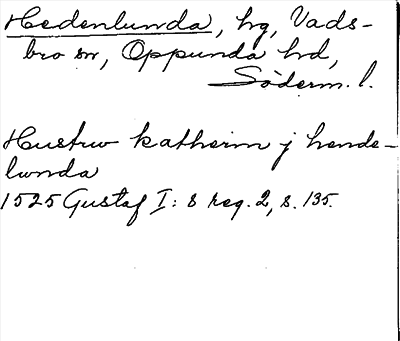 Hedenlunda, hg, Vads-
bro sn, Oppunda hd,
Söderm. l.
Hustrw katherin j hende-
lunda
1525 Gustaf I: s reg. 2, s. 135.